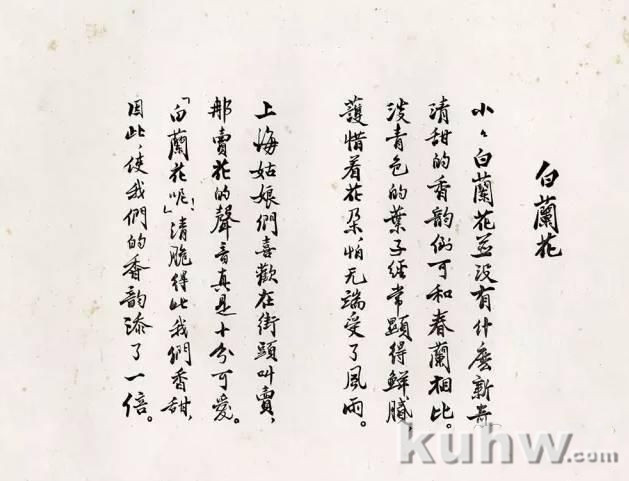 白蘭花
小々白蘭花並没有什麼新奇
清甜的香韵倒可和春蘭相比。
淡青色的葉子经常顯得鮮膩，
護惜着花朵，怕无端受了風雨。
上海姑娘們喜歡在街頭叫賣，
那賣花的聲音真是十分可愛。
「白蘭花呢！」清脆得比我們香甜，
因此，使我們的香韵添了一倍。
kuhw.com